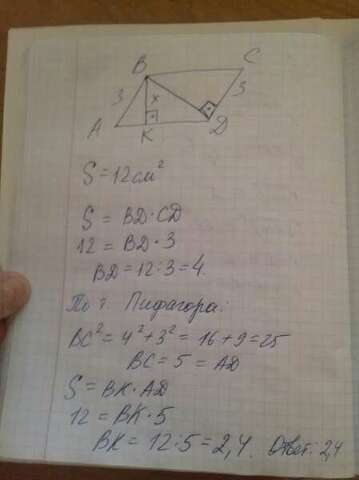 B
C
3
x
3
A
K
D
S = 12 см²
S = BD · CD
12 = BD · 3
BD = 12 : 3 = 4
По т. Пифагора:
BC² = 4² + 3² = 16 + 9 = 25
BC = 5 = AD
S = BK · AD
12 = BK · 5
BK = 12 : 5 = 2,4. Ответ: 2,4